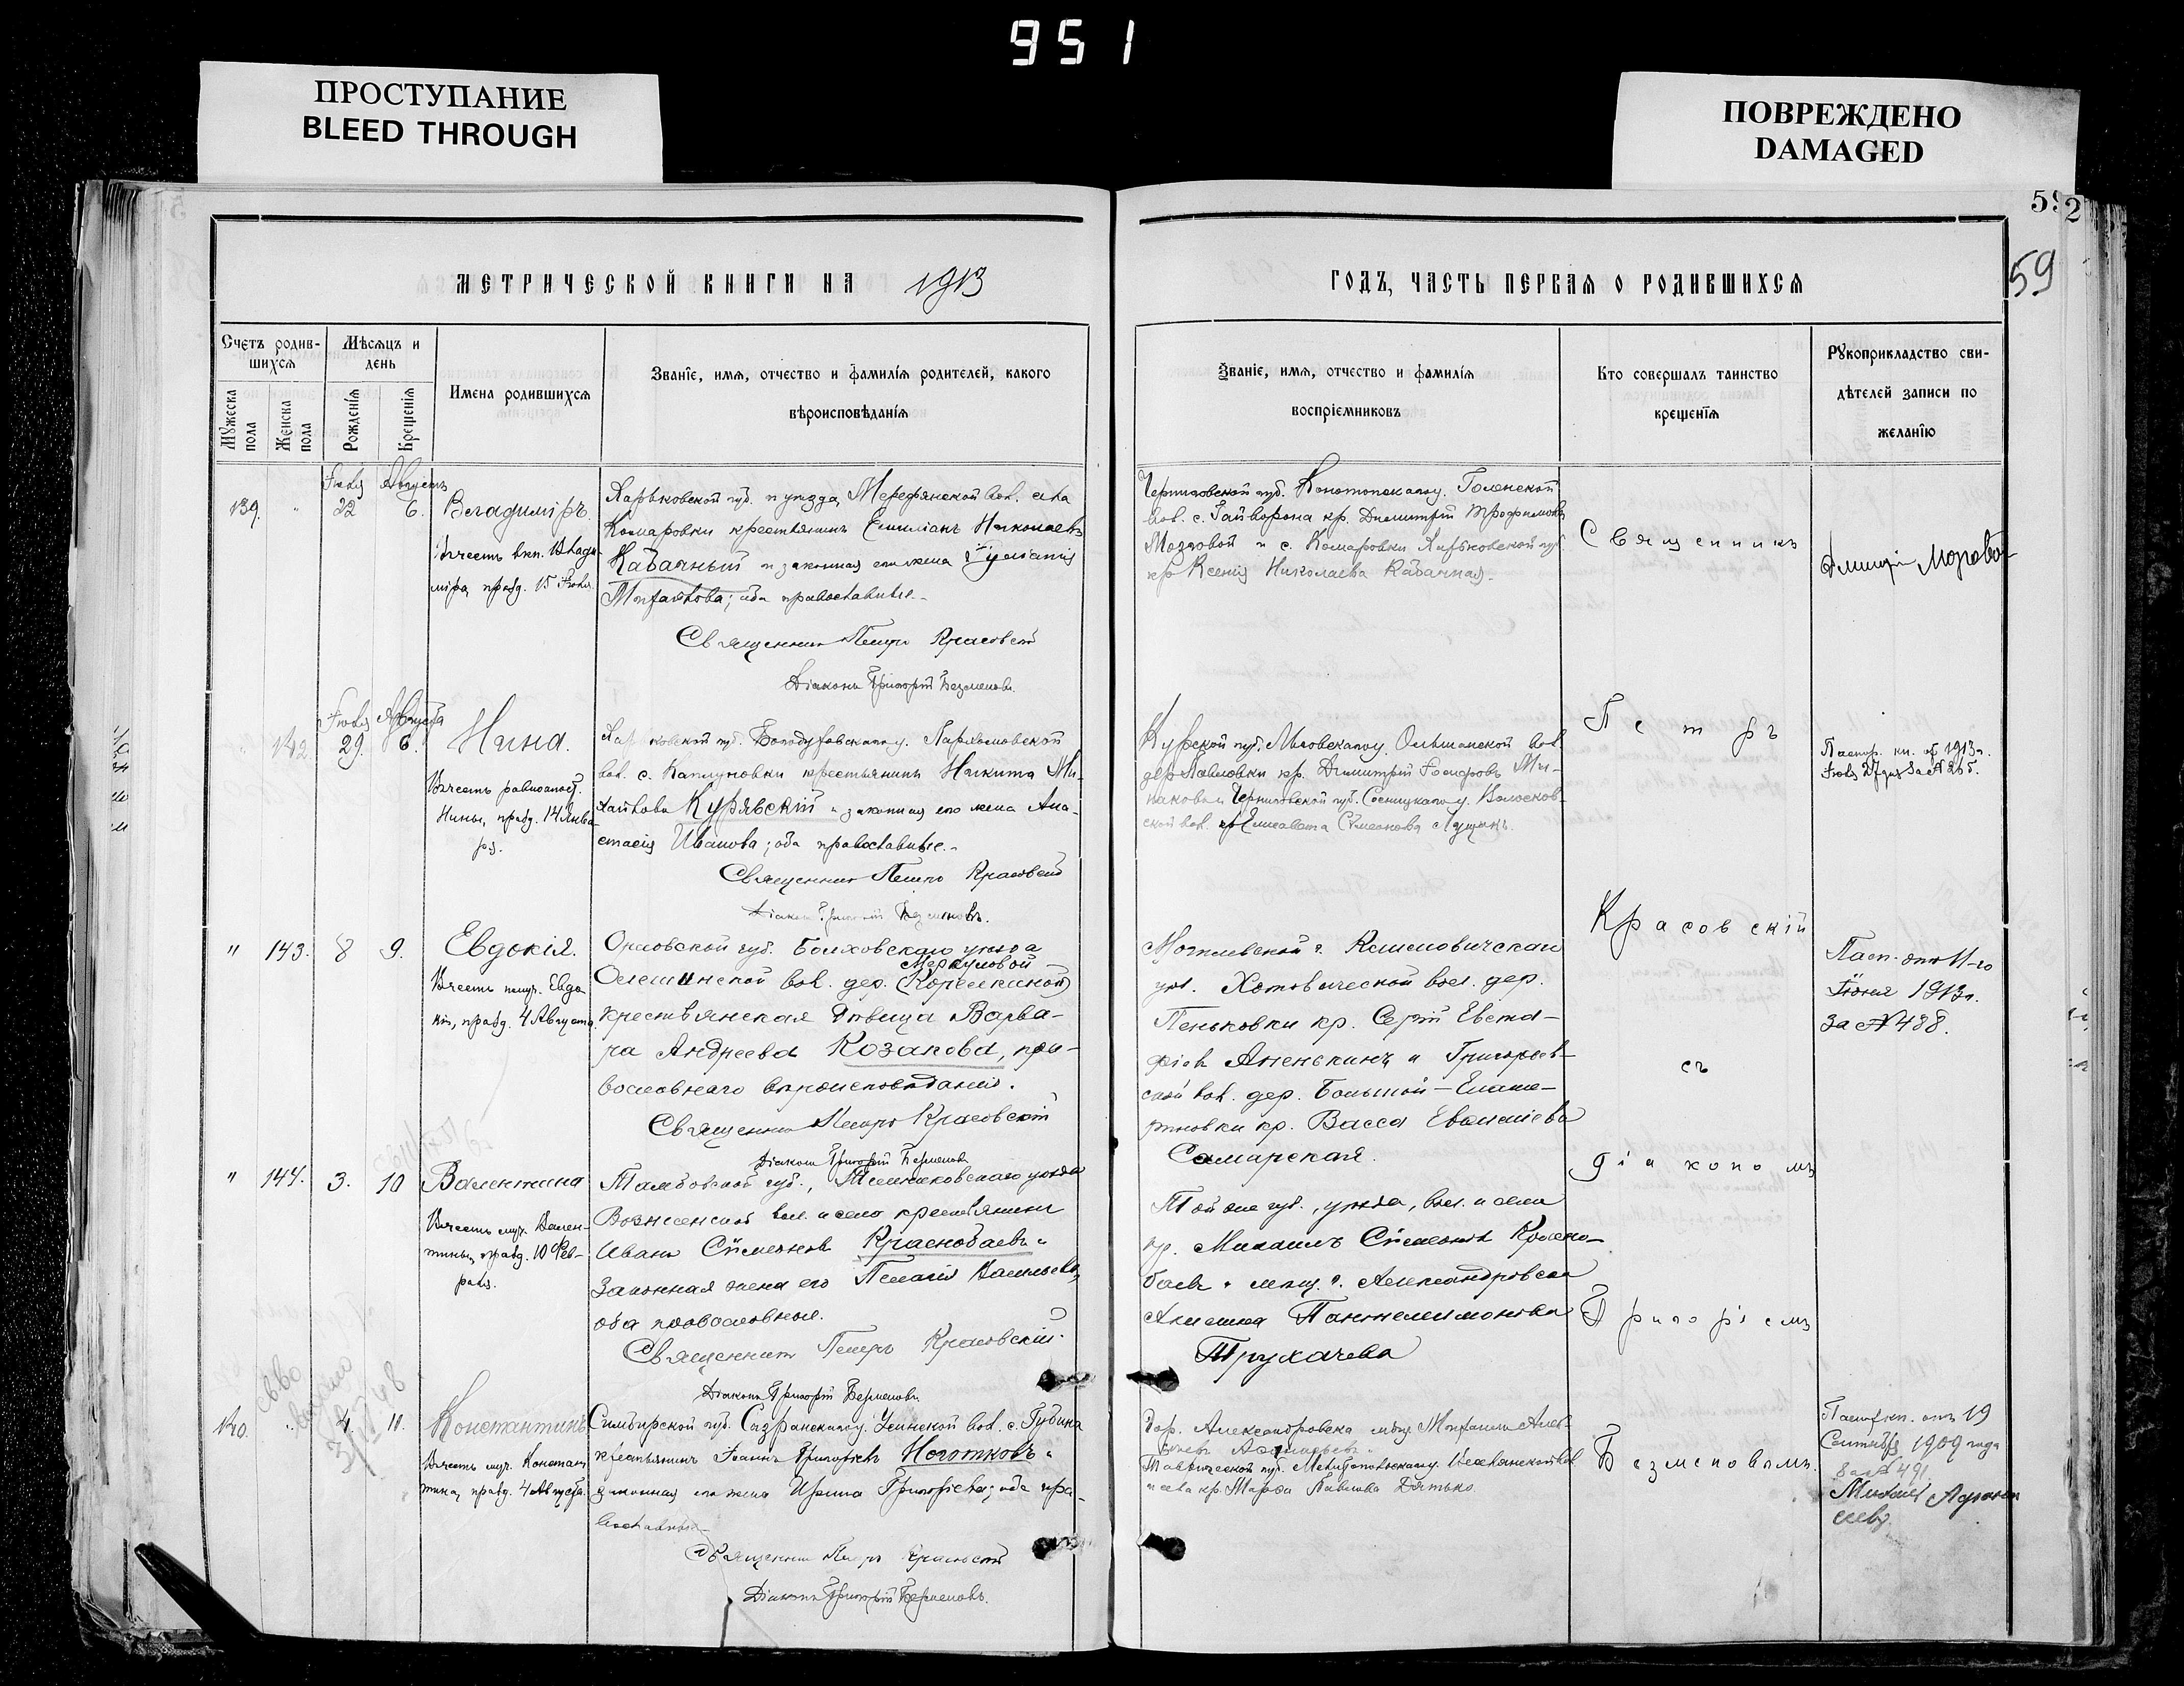 951
ПРОСТУПАНИЕ
BLEED THROUGH
ПОВРЕЖДЕНО
DAMAGED
59
2
59
МЕТРИЧЕСКОЙ КНИГИ НА 1913
ГОДЪ, ЧАСТЬ ПЕРВАЯ О РОДИВШИХСЯ
Счетъ родив-
шихся
Мѣсяцъ и
день
Мужеска
пола
Женска
пола
Рожденія
Крещенія
Имена родившихся
Званіе, имя, отчество и фамилія родителей, какого
вѣроисповѣданія
Званіе, имя, отчество и фамилія
воспріемниковъ
Кто совершалъ таинство
крещенія
Рукоприкладство сви-
дѣтелей записи по
желанію
139. " Іюля 22 Августъ 6.
Владиміръ.
Въ честь вкн. Влади-
міра, празд. 15 Іюля.
Харьковской губ. и уѣзда, Мерефянской вол. села
Комаровки крестьянинъ Емиліанъ Николаевъ
Кабачный и законная его жена Іуліанія
оба православные.
Священникъ Петръ Красовскій
Діаконъ Григорій Безменовъ.
Черниговской губ. Конотопскаго у. Голенской
вол. с. Гайворона кр. Димитрій Трофимовъ
Мозговой и с. Комаровки Харьковской губ.
кр. Ксенія Николаева Кабачная.
Священникъ
142 Іюля 29. Августа 6.
Нина.
Въ честь равноапост.
Нины, празд. 14 Янва-
ря.
Харьковской губ. Богодуховскаго у. Пархомовской
вол. с. Каплуновки крестьянинъ Никита Ми-
хайловъ Курявскій и законная его жена Ана-
стасія Иванова; оба православные.
Священникъ Петръ Красовскій
Діаконъ Григорій Безменовъ.
Курской губ. Льговскаго у. Ольшанской вол.
дер. Павловки кр. Димитрій
Черниговской губ. Сосницкаго у. Волосков-
ской вол. кр. Елисавета Симеонова
Петръ
Паспор. кн. отъ 1913 г.
Іюля 27 дня за № 265.
" 143. 8 9.
Евдокія.
Въ честь муч. Евдо-
кіи, празд. 4 Августа.
Орловской губ. Болховскаго уѣзда
Меркуловой
вол. дер. (Корелкиной)
крестьянская дѣвица Варва-
ра Андреева Козакова, пра-
вославнаго вѣроисповѣданія.
Священникъ Петръ Красовскій
Діаконъ Григорій Безменовъ
Могилевской г. Климовичскаго
уѣз. Хотовичской вол. дер.
Пеньковки кр. Сергій Евста-
фіевъ Ананькинъ и Григорьев-
ской вол. дер. Большой-Екате-
риновки кр. Васса
Самарская.
Красовскій
Пасп. отъ 11-го
Іюня 1913 г.
За № 438.
съ
" 144. 3. 10
Валентина
Въ честь муч. Вален-
тины, празд. 10 Фев-
раля.
Тамбовской губ., Темниковскаго уѣзда
Вознесенской вол. и села крестьянинъ
Иванъ Симеоновъ Краснобаевъ и
законная жена его Пелагія Васильева,
оба православные.
Священникъ Петръ Красовскій.
Діаконъ Григорій Безменовъ
Той же губ., уѣзда, вол. и села
кр. Михаилъ Симеоновъ Красно-
баевъ и мѣщ. г. Александровска
Акилина Пантелеимонова
Трухачева
діакономъ
Григоріемъ
140. " 4. 10.
Константинъ
Въ честь муч. Констан-
тина, празд. 4 Августа.
Симбирской губ. Сызранскаго у. Усинской вол. с. Губина
крестьянинъ Іоаннъ Григорьевъ Ноготковъ и
законная его жена Ирина Григорьева; оба пра-
вославные
Священникъ Петръ Красовскій
Діаконъ Григорій Безменовъ.
Гор. Александровска мѣщ.
Таврической губ. Мелитопольскаго у.
и села кр. Марфа Павлова Дятько.
Безменовымъ.
Паспор. кн. отъ 19
Сентября 1909 года
За № 491.